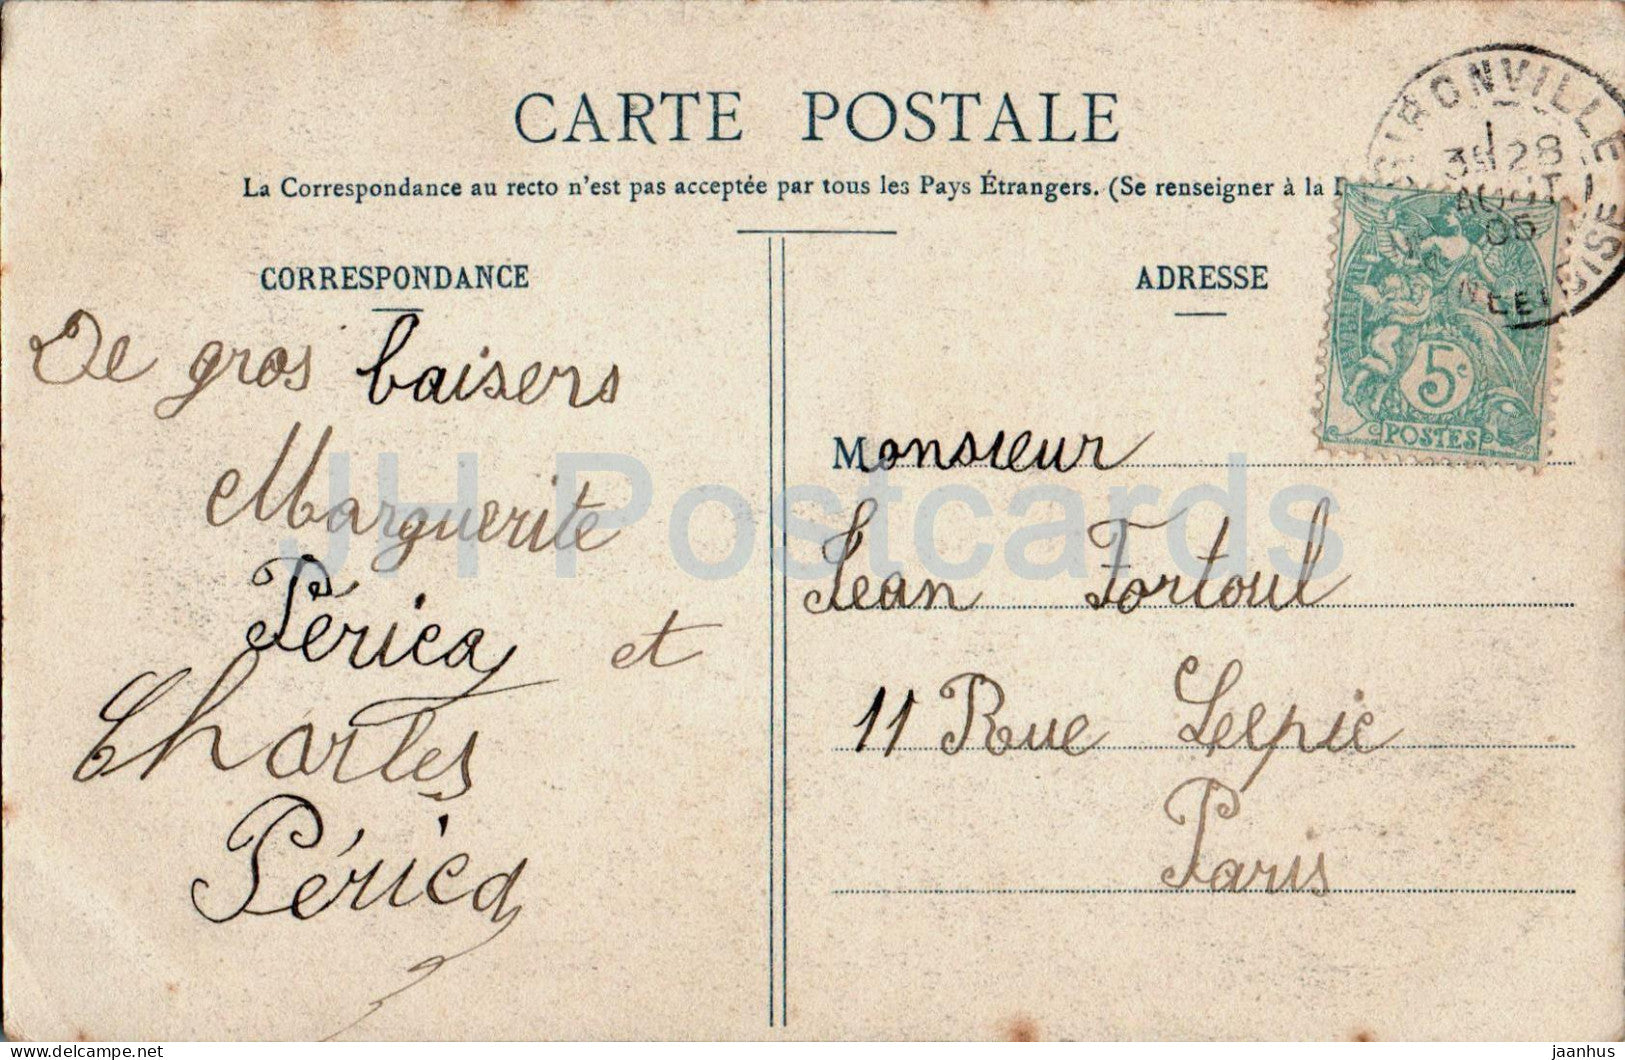 CARTE POSTALE
La Correspondance au recto n'est pas acceptée par tous les Pays Étrangers. (Se renseigner à la
CORRESPONDANCE
De gros baisers
Marguerite
Périca et
Charles
Périca
ADRESSE
Monsieur
Jean Fortoul
11 Rue Lepic
Paris
GIRONVILLE
3E 28
AOUT
05
SEINE
5c
POSTES
JH Postcards
delcampe.net
jaanhus